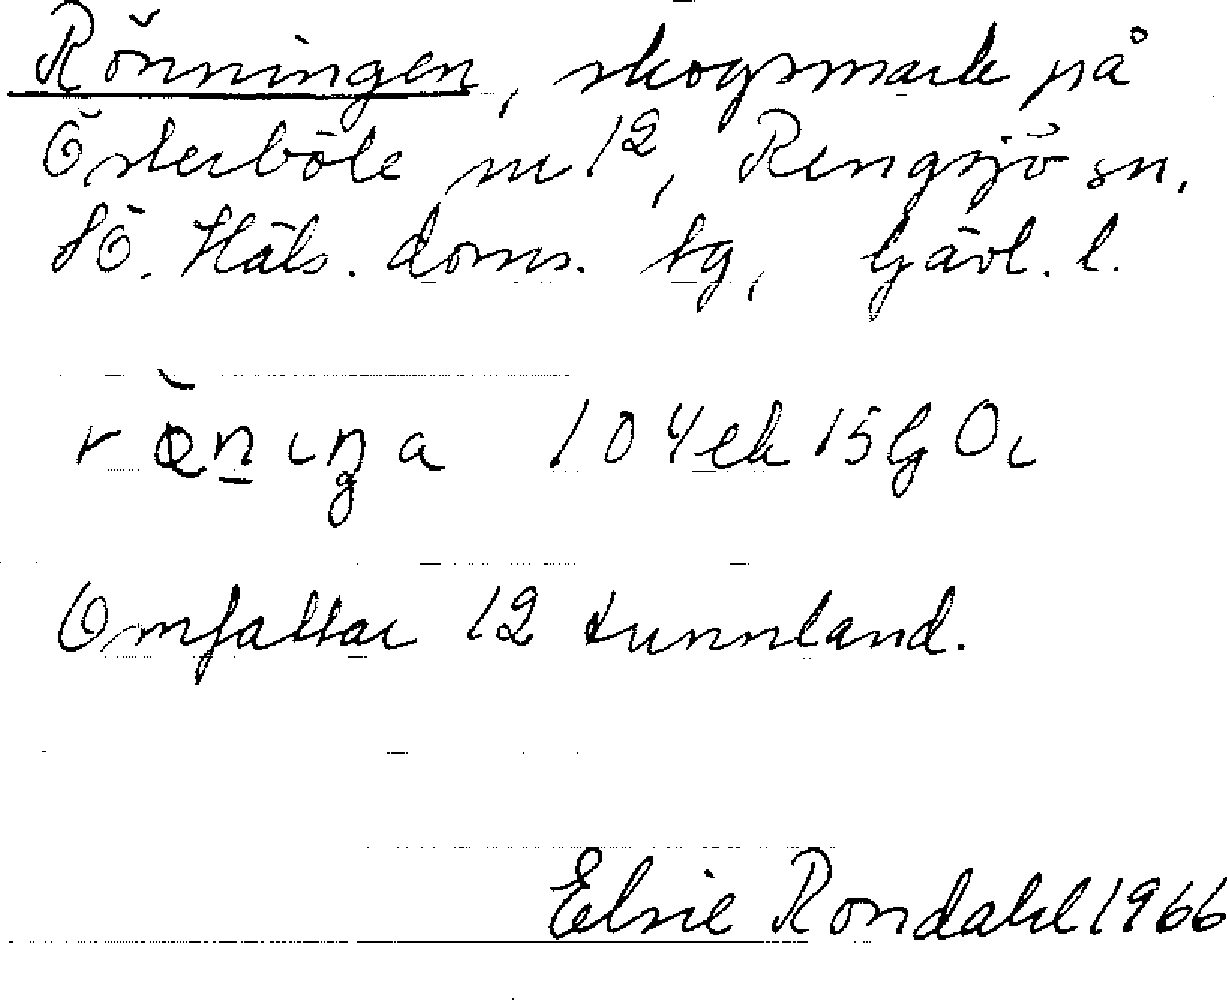 Rönningen, skogsmark på
Österböle nr 1², Rengsjö sn,
SÖ. Häls. doms. tg, Gävl. l.
104 ek 15 G Oi
Omfattar 12 tunnland.
Elsie Rondahl 1966